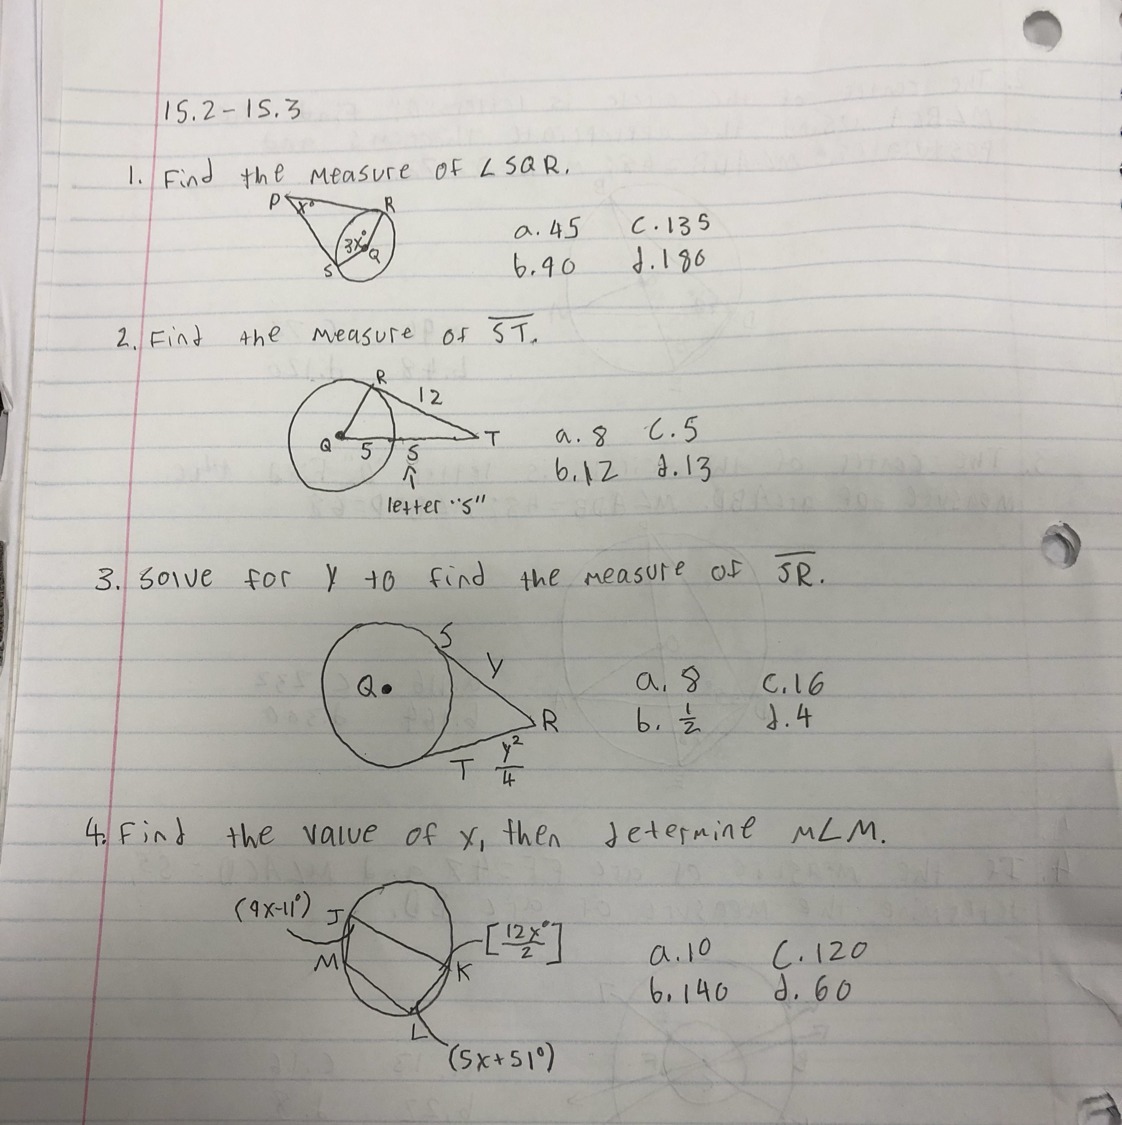 15.2-15.3
1. Find the measure of ∠SQR.
P x° R
3x° Q
S
a. 45 c. 135
b. 90 d. 180
2. Find the measure of S̅T̅.
R 12
Q 5 S T
↑
letter "S"
a. 8 c. 5
b. 12 d. 13
3. Solve for y to find the measure of S̅R̅.
S y
Q
R
T y²/4
a. 8 c. 16
b. 1/2 d. 4
4. Find the value of x, then determine m∠M.
(9x-11°) J
[12x°/2]
M K
L
(5x+51°)
a. 10 c. 120
b. 140 d. 60